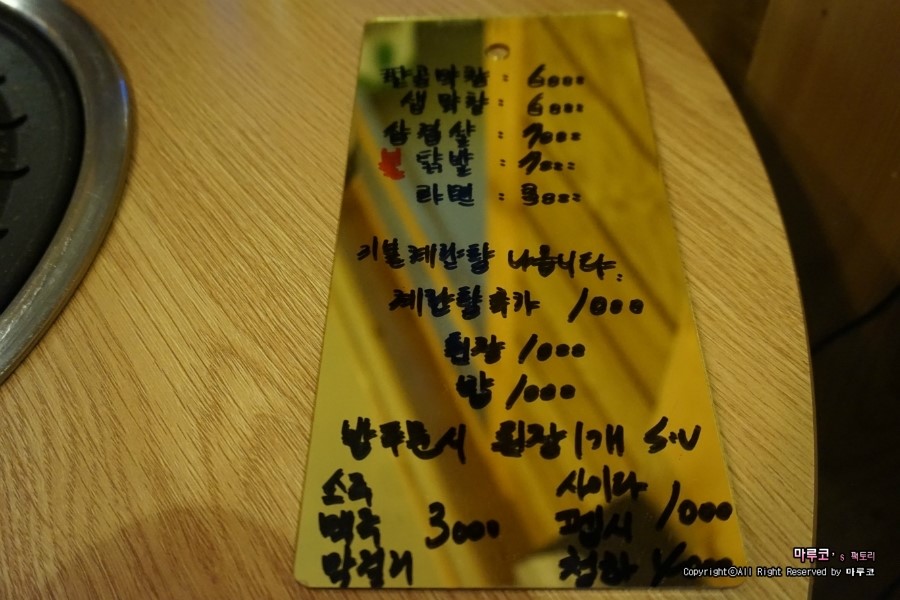 생막창 : 6000
삼겹살 : 7000
불 닭발 : 7000
라면 : 3000
기본 계란탕 나옵니다.
계란탕추가 1000
된장 1000
밥 1000
밥주문시 된장1개 S.V
소주
맥주 3000
막걸리
사이다
펩시 1000
청하
마루코's 팩토리
Copyright©All Right Reserved by 마루코